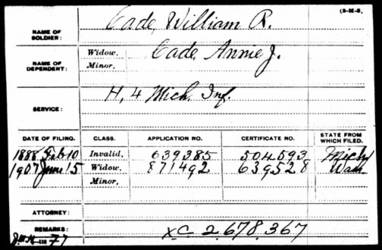 (3-85-B.
NAME OF SOLDIER: Cade, William R.
NAME OF DEPENDENT: Widow, Cade, Annie J.
Minor,
SERVICE: H, 4 Mich. Inf.
DATE OF FILING. CLASS. APPLICATION NO. CERTIFICATE NO. STATE FROM WHICH FILED.
1888 Feb 10 Invalid, 639385 504593 Mich
1907 June 15 Widow, 871492 639528 Wash
Minor,
ATTORNEY:
REMARKS: XC 2,678,367